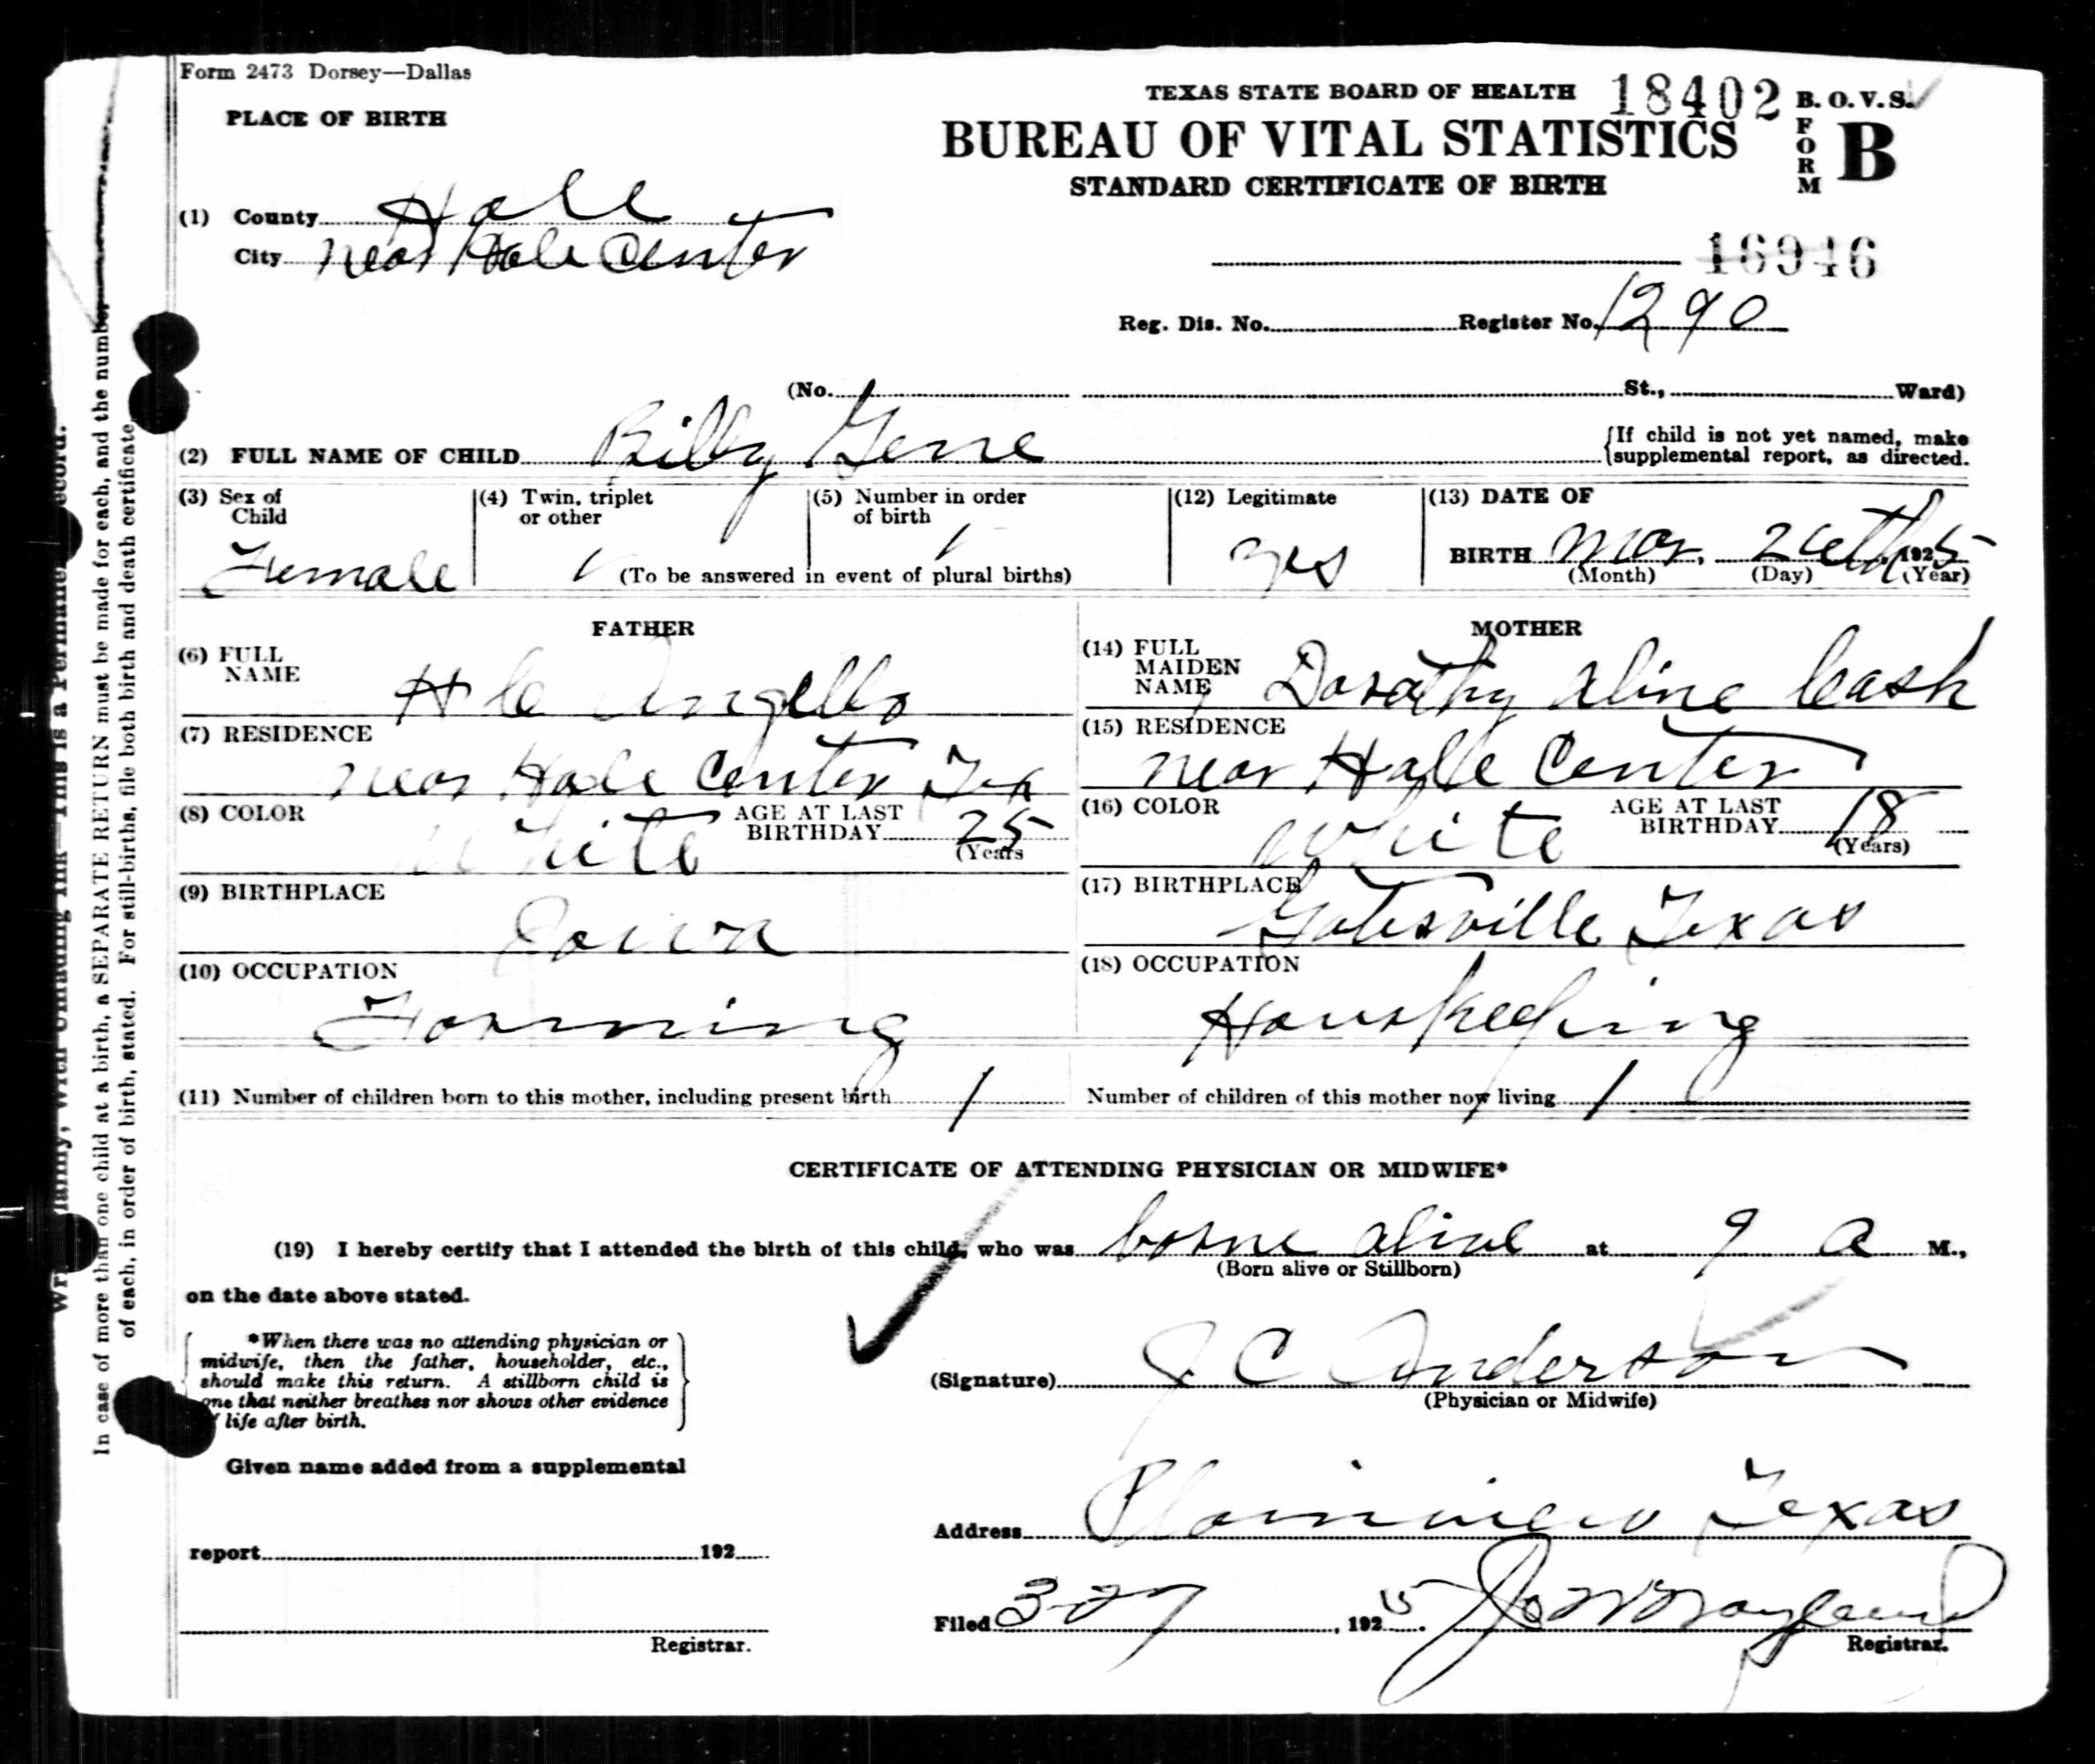 Form 2473 Dorsey—Dallas
TEXAS STATE BOARD OF HEALTH 18402 B. O. V. S.
PLACE OF BIRTH
BUREAU OF VITAL STATISTICS FORM B
STANDARD CERTIFICATE OF BIRTH
(1) County Hale
City near Hale Center
16946
Reg. Dis. No. Register No. 1290
(No. St., Ward)
(2) FULL NAME OF CHILD Billy Gene
{If child is not yet named, make
supplemental report, as directed.
(3) Sex of Child Female
(4) Twin, triplet or other
(5) Number in order of birth
(To be answered in event of plural births)
(12) Legitimate yes
(13) DATE OF
BIRTH Mar. 1925
(Month) (Day) (Year)
FATHER
(6) FULL NAME H C
(7) RESIDENCE
near Hale Center Tex
(8) COLOR White AGE AT LAST BIRTHDAY 25
(Years
(9) BIRTHPLACE
Iowa
(10) OCCUPATION
Farming
MOTHER
(14) FULL MAIDEN NAME Dorathy Aline Cash
(15) RESIDENCE
near Hale Center
(16) COLOR White AGE AT LAST BIRTHDAY 18
(Years)
(17) BIRTHPLACE
Gatesville Texas
(18) OCCUPATION
Houskeeping
(11) Number of children born to this mother, including present birth 1 Number of children of this mother now living 1
CERTIFICATE OF ATTENDING PHYSICIAN OR MIDWIFE*
(19) I hereby certify that I attended the birth of this child, who was borne alive at 9 a M.,
(Born alive or Stillborn)
on the date above stated.
*When there was no attending physician or
midwife, then the father, householder, etc.,
should make this return. A stillborn child is
one that neither breathes nor shows other evidence
life after birth.
(Signature) J C Anderson
(Physician or Midwife)
Given name added from a supplemental
Address Plainview Texas
report 192
Filed 3-27, 1925. Jo W Wayland
Registrar. Registrar.
In case of more than one child at a birth, a SEPARATE RETURN must be made for each, and the number
of each, in order of birth, stated. For still-births, file both birth and death certificate.
with Unfading Ink—This is a Permanent Record.